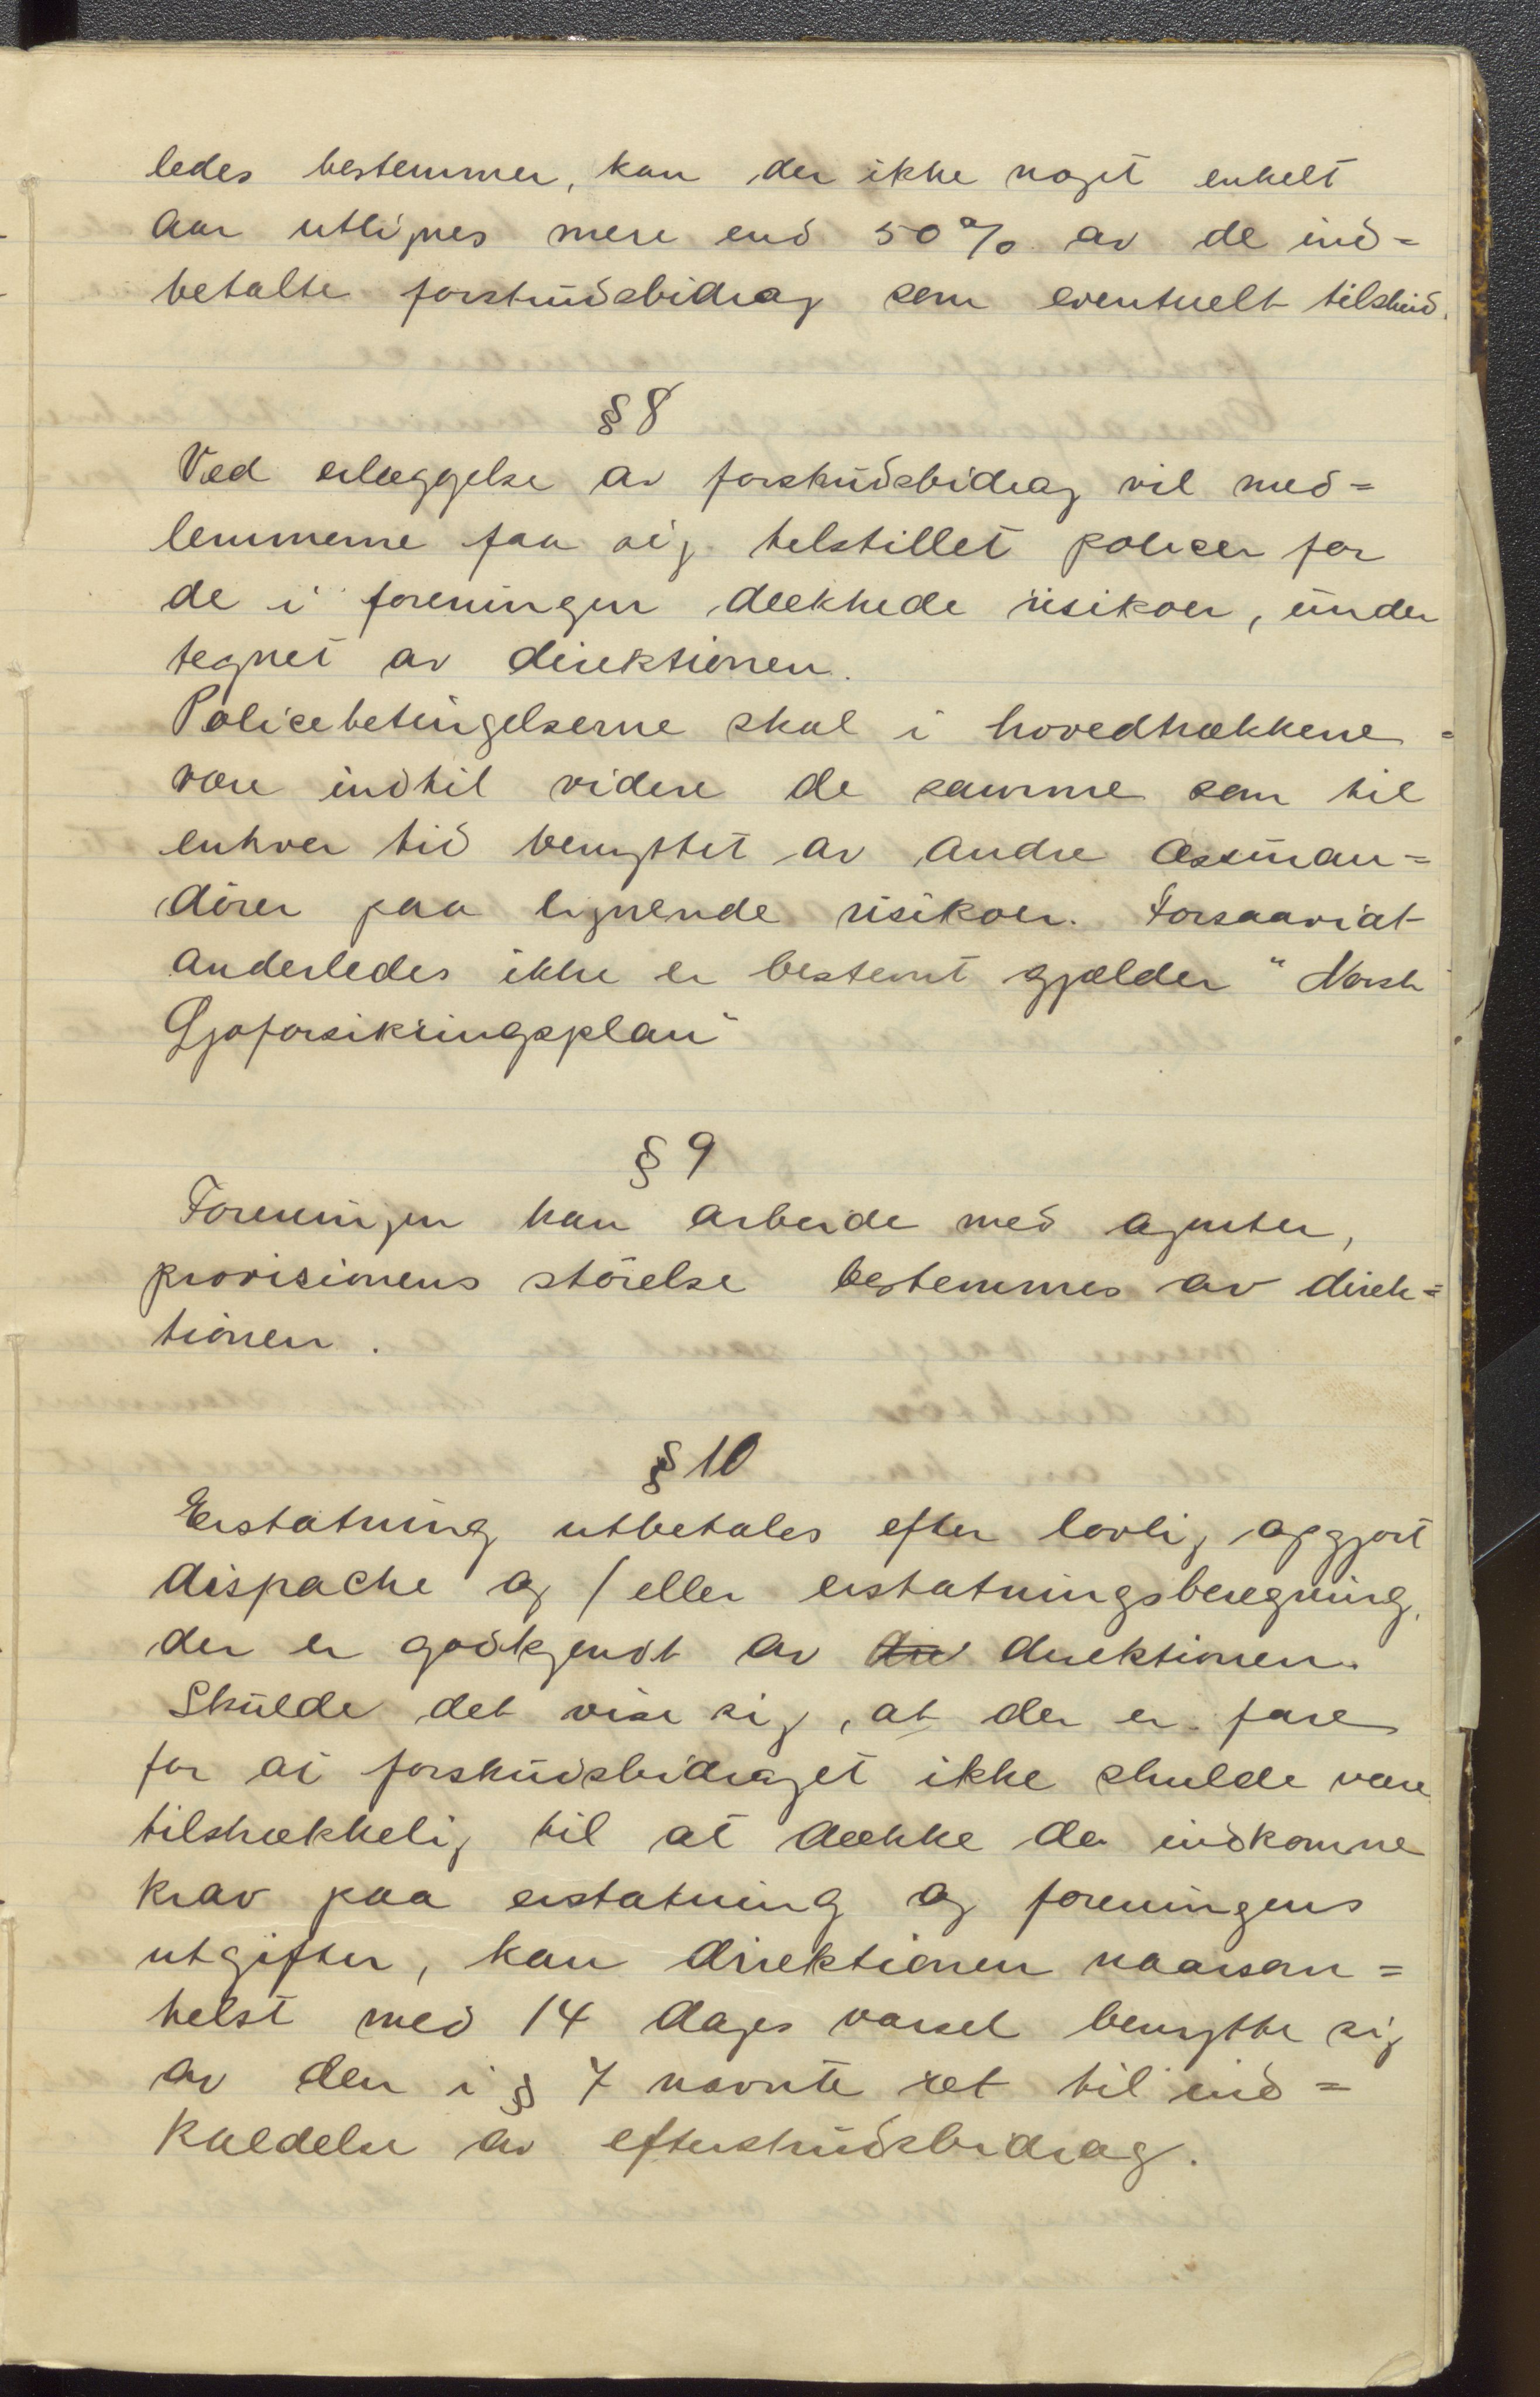 ledes bestemmer, kan der ikke noget enkelt
aar utlignes mere end 50% av de ind=
betalte forskudsbidrag som eventuelt tilskud.
§ 8
Ved erlæggelse av forskudsbidrag vil med=
lemmerne faa sig tilstillet policer for
de i foreningen dækkede risikoer, under
tegnet av direktionen.
Policebetingelserne skal i hovedtrækkene =
være indtil videre de samme som til
enhver tid benyttet av andre assuran=
dører paa lignende risikoer. Forsaaviat
anderledes ikke er bestemt gjælder "Norsk
Sjoforsikringsplan"
§ 9
Foreningen kan arbeide med agenter,
provisionens störelse bestemmes av direk=
tionen.
§ 10
Erstatning utbetales efter lovlig opgjort
dispache og / eller erstatningsberegning,
der er godkjendt av den direktionen.
Skulde det vise sig, at der er fare
for at forskudsbidraget ikke skulde være
tilstrækkelig til at dække de indkomne
krav paa erstatning og foreningens
utgifter, kan direktionen naarsom=
helst med 14 dages varsel benytte sig
av den i § 7 nævnte ret til ind=
kaldelse av efterskudsbidrag.